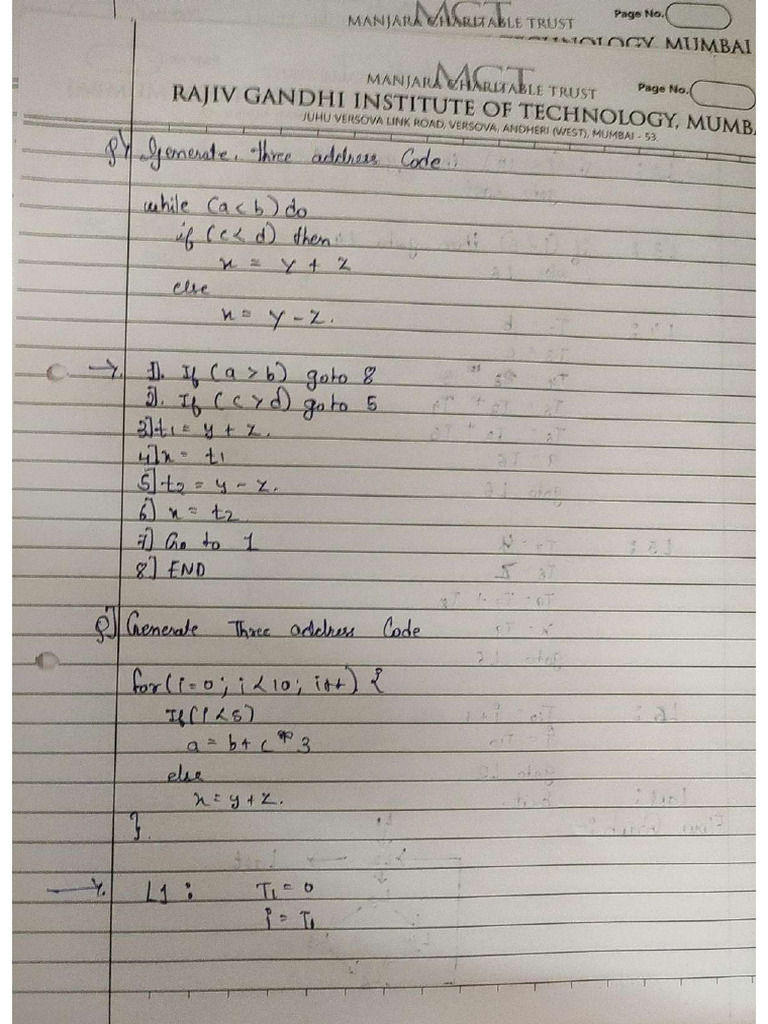 MCT
MANJARA CHARITABLE TRUST
Page No.
TECHNOLOGY, MUMBAI
MCT
MANJARA CHARITABLE TRUST
Page No.
RAJIV GANDHI INSTITUTE OF TECHNOLOGY, MUMB
JUHU VERSOVA LINK ROAD, VERSOVA, ANDHERI (WEST), MUMBAI - 53.
Q] Generate three address Code.
while (a < b) do
if (c < d) then
x = y + z
else
x = y - z.
→ 1]. If (a > b) goto 8
2]. If (c > d) goto 5
3] t1 = y + z.
4] x = t1
5] t2 = y - z.
6] x = t2
7] Go to 1
8] END
Q] Generate Three address Code
for (i=0; i<10; i++) {
If (i<5)
a = b + c * 3
else
x = y + z.
}.
→ L1 : T1 = 0
i = T1